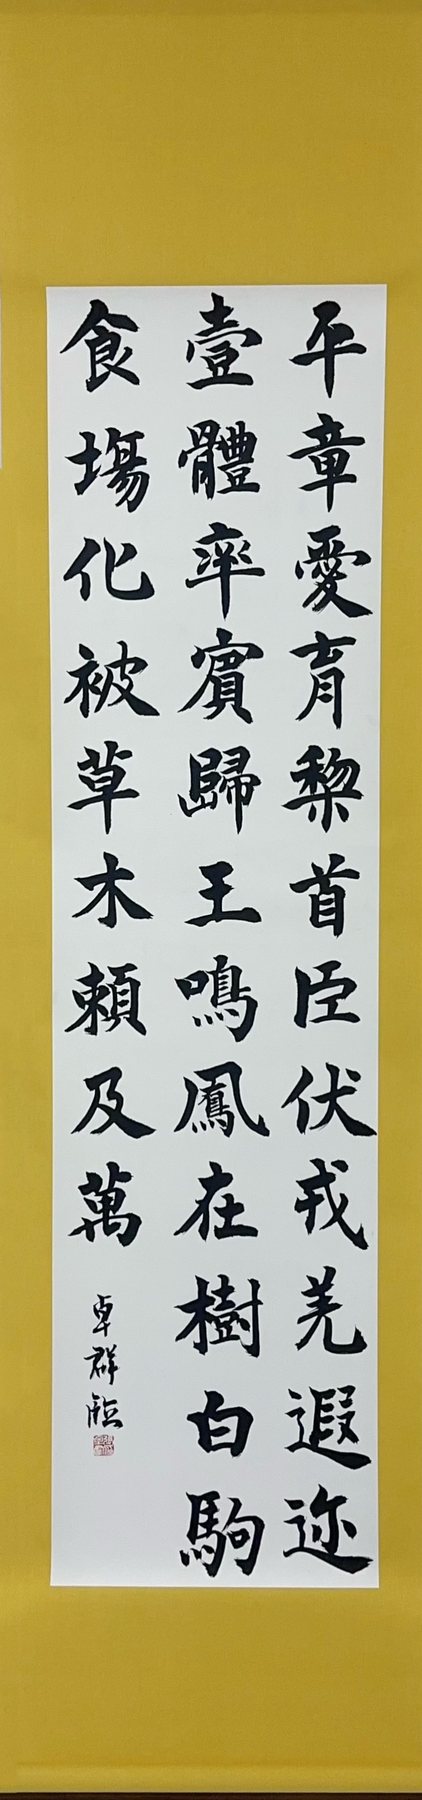 平章愛育黎首臣伏戎羌遐迩
壹體率賓歸王鳴鳳在樹白駒
食場化被草木賴及萬
卓群臨